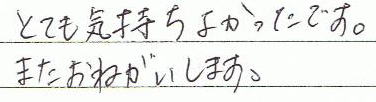 とても気持ちよかったです。
またおねがいします。